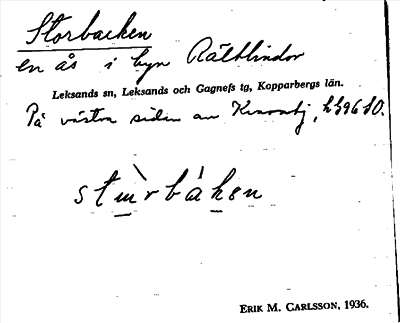 Storbacken
en ås i byn Rältlindor
Leksands sn, Leksands och Gagnefs tg, Kopparbergs län.
På västra sidan av
stɯ̀rbáken
ERIK M. CARLSSON, 1936.